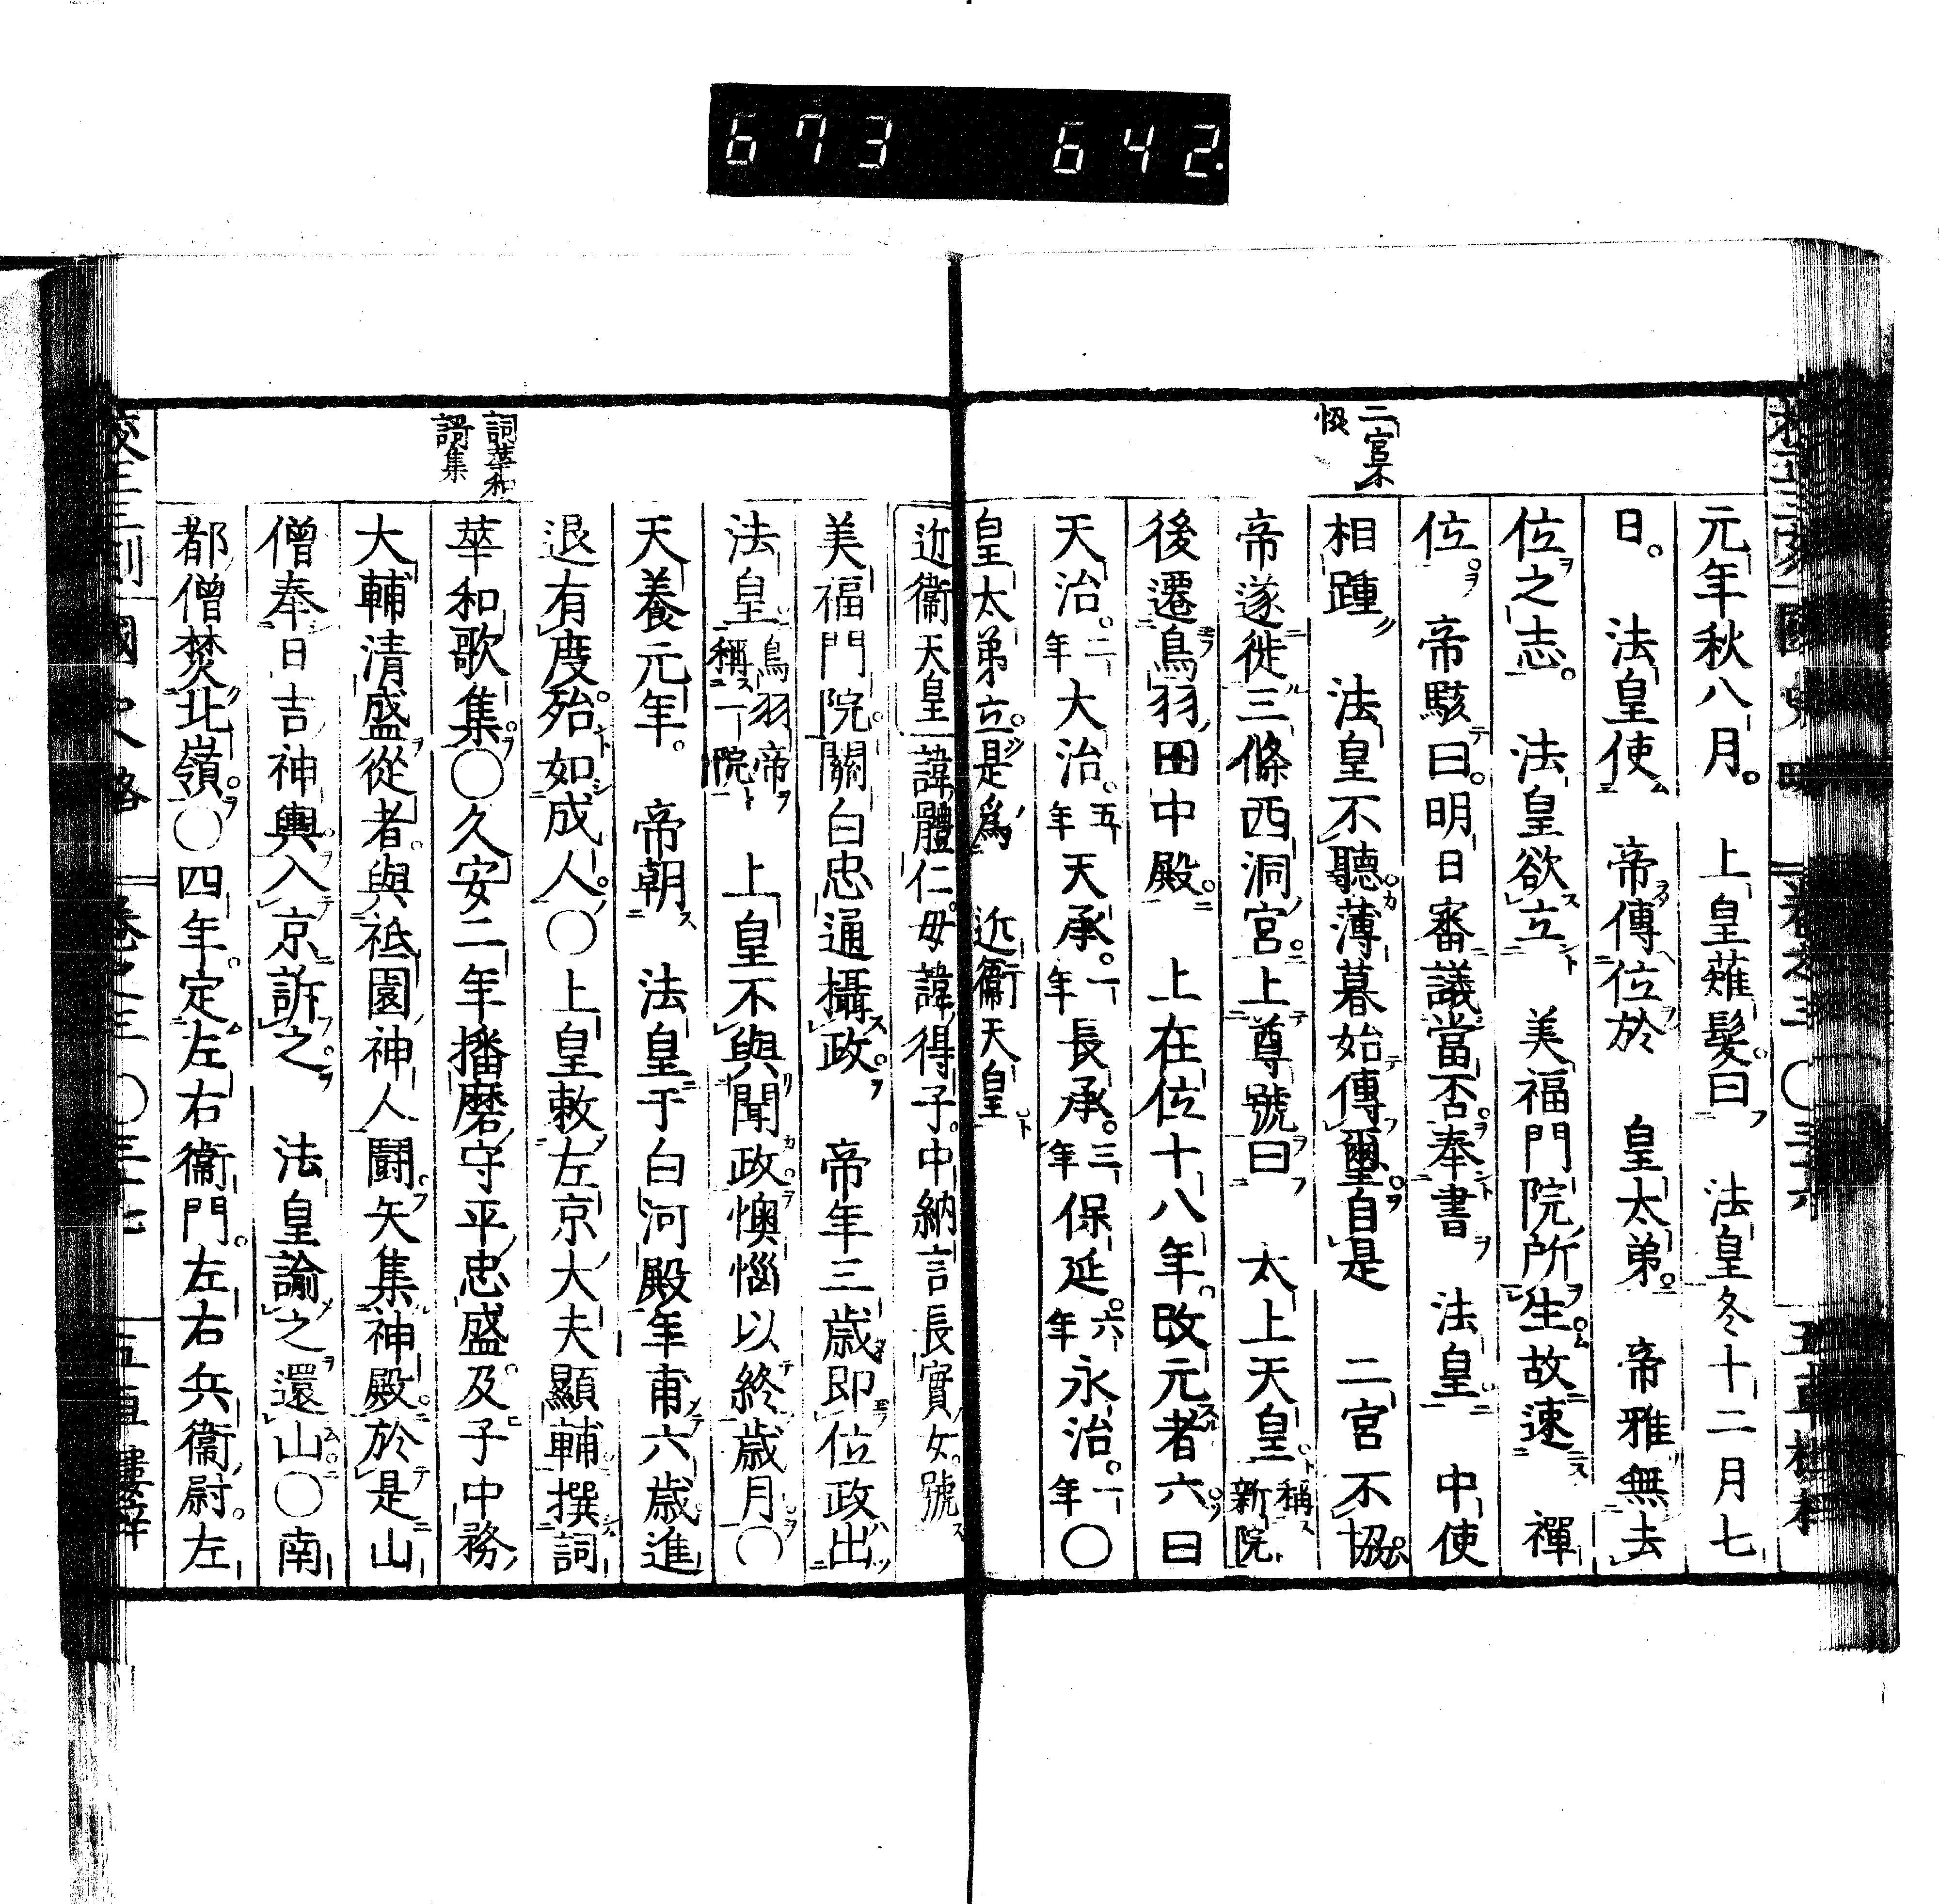 673 642.
二宮不
恊
元年秋八月。上皇薙髮。曰法皇冬十二月七
日。法皇使帝傳位於皇太弟。帝雅無去
位之志。法皇欲立美福門院所生故速禪
位。帝駭曰。明日審議當否。奉書法皇中使
相踵法皇不聽。薄暮始傳璽。自是二宮不協。
帝遂徙三條西洞宮。上尊號曰太上天皇。稱新院
後遷鳥羽田中殿。上在位十八年。改元者六。曰
天治。二年大治。五年天承。一年長承。三年保延。六年永治。一年○
皇太弟立。是爲近衞天皇
詞華和
謌集
近衞天皇諱體仁。母諱得子。中納言長實女。號
美福門院。關白忠通攝政。帝年三歳即位政出
法皇鳥羽帝稱一院上皇不與聞政。懊惱以終歳月○
天養元年。帝朝法皇于白河殿年甫六歳。進
退有度。殆如成人。○上皇敕左京大夫顯輔撰詞
華和歌集。○久安二年播磨守平忠盛。及子中務
大輔清盛從者。與祗園神人鬪。矢集神殿。於是山
僧奉日吉神輿。入京訴之。法皇諭之還山。○南
都僧焚北嶺。○四年。定左右衞門。左右兵衞尉。左